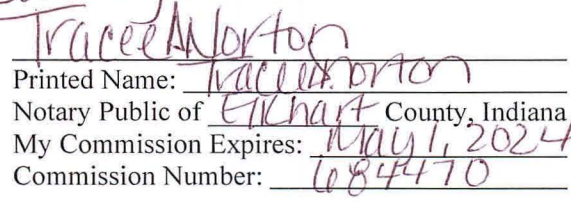 Tracee A Norton
Printed Name: Tracee A. Norton
Notary Public of Elkhart County, Indiana
My Commission Expires: May 1, 2024
Commission Number: 684470